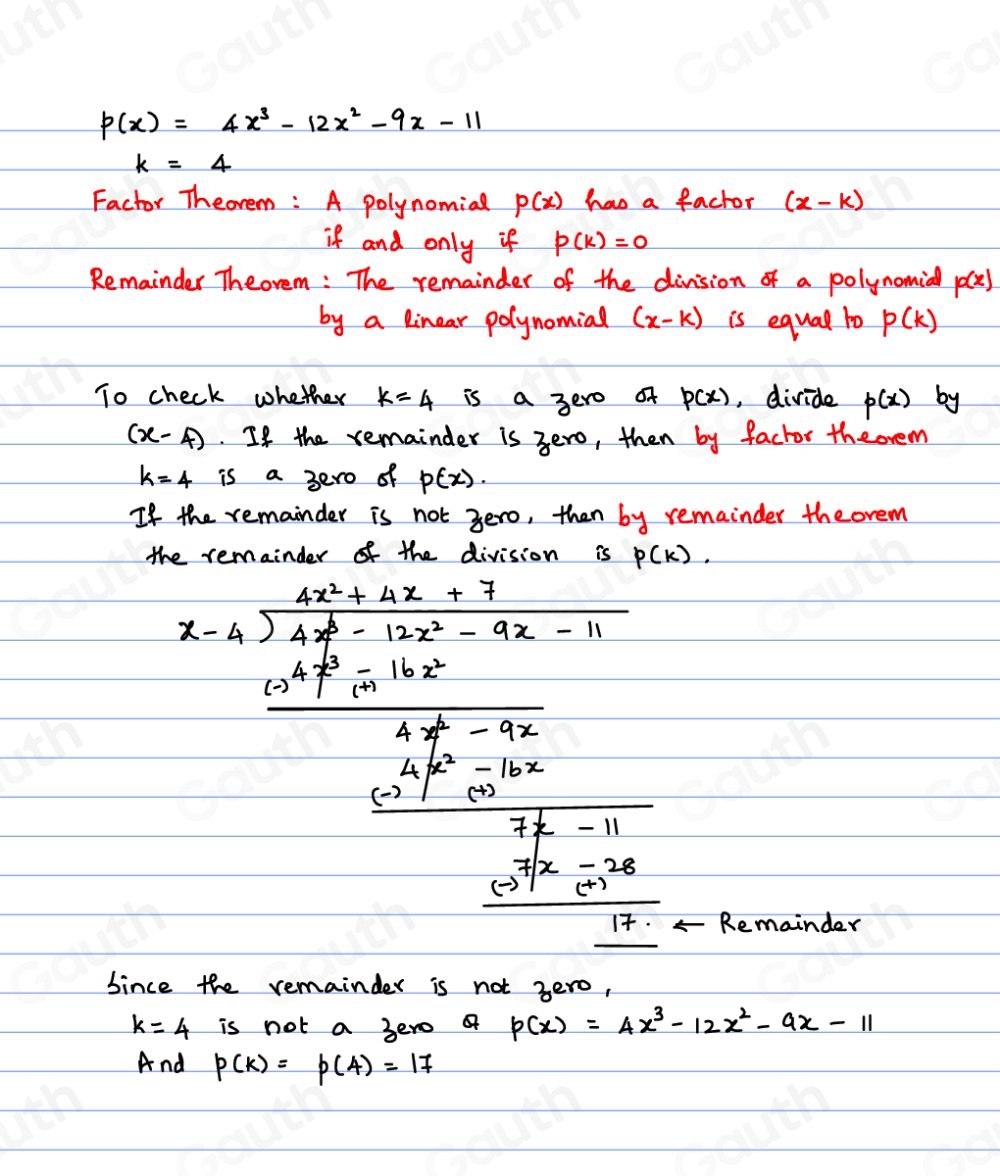 p(x) = 4x³ - 12x² - 9x - 11
k = 4
Factor Theorem : A polynomial p(x) has a factor (x - k)
if and only if p(k) = 0
Remainder Theorem : The remainder of the division of a polynomial p(x)
by a linear polynomial (x-k) is equal to p(k)
To check whether k=4 is a zero of p(x), divide p(x) by
(x-4). If the remainder is zero, then by factor theorem
k=4 is a zero of p(x).
If the remainder is not zero, then by remainder theorem
the remainder of the division is p(k).
4x² + 4x + 7
x-4 ) 4x³ - 12x² - 9x - 11
4x³ - 16x²
(-) (+)
4x² - 9x
4x² - 16x
(-) (+)
7x - 11
7x - 28
(-) (+)
17. ← Remainder
Since the remainder is not zero,
k=4 is not a zero of p(x) = 4x³ - 12x² - 9x - 11
And p(k) = p(4) = 17
Gauth